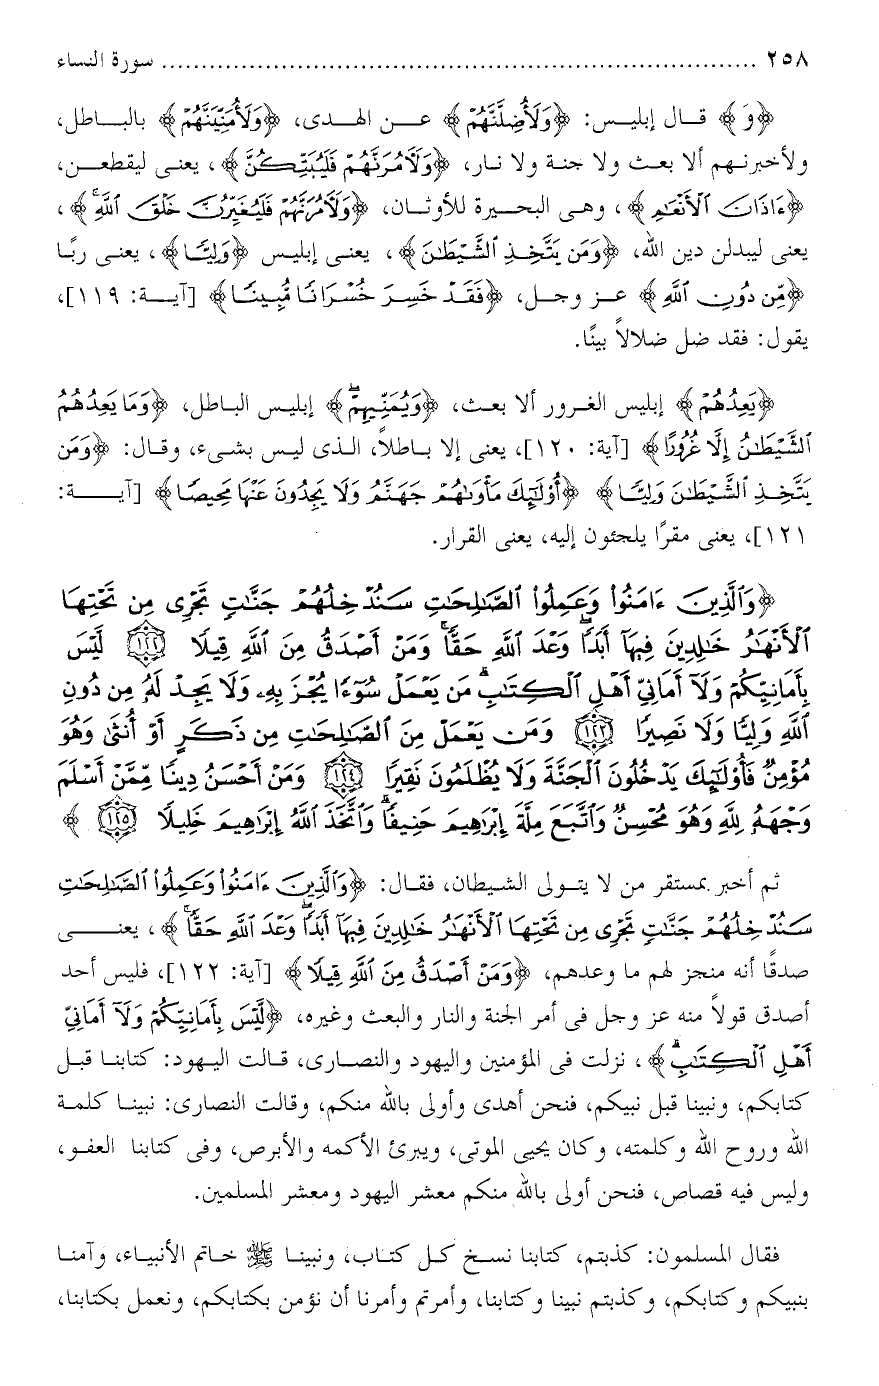 ٢٥٨ ........................................................................... سورة النساء
﴿وَ﴾ قال إبليس: ﴿وَلَأُضِلَّنَّهُمْ﴾ عن الهدى، ﴿وَلَأُمَنِّيَنَّهُمْ﴾ بالباطل،
ولأخبرنهم ألا بعث ولا جنة ولا نار، ﴿وَلَآمُرَنَّهُمْ فَلَيُبَتِّكُنَّ﴾، يعنى ليقطعن،
﴿ءَاذَانَ ٱلْأَنْعَٰمِ﴾، وهى البحيرة للأوثان، ﴿وَلَآمُرَنَّهُمْ فَلَيُغَيِّرُنَّ خَلْقَ ٱللَّهِ﴾،
يعنى ليبدلن دين الله، ﴿وَمَن يَتَّخِذِ ٱلشَّيْطَٰنَ﴾، يعنى إبليس ﴿وَلِيًّا﴾، يعنى ربًا
﴿مِّن دُونِ ٱللَّهِ﴾ عز وجل، ﴿فَقَدْ خَسِرَ خُسْرَانًا مُّبِينًا﴾ [آية: ١١٩]،
يقول: فقد ضل ضلالاً بينًا.
﴿يَعِدُهُمْ﴾ إبليس الغرور ألا بعث، ﴿وَيُمَنِّيهِمْ﴾ إبليس الباطل، ﴿وَمَا يَعِدُهُمُ
ٱلشَّيْطَٰنُ إِلَّا غُرُورًا﴾ [آية: ١٢٠]، يعنى إلا باطلاً، الذى ليس بشىء، وقال: ﴿وَمَن
يَتَّخِذِ ٱلشَّيْطَٰنَ وَلِيًّا﴾ ﴿أُوْلَٰٓئِكَ مَأْوَىٰهُمْ جَهَنَّمُ وَلَا يَجِدُونَ عَنْهَا مَحِيصًا﴾ [آية:
١٢١]، يعنى مقرًا يلجئون إليه، يعنى القرار.
﴿وَٱلَّذِينَ ءَامَنُوا۟ وَعَمِلُوا۟ ٱلصَّٰلِحَٰتِ سَنُدْخِلُهُمْ جَنَّٰتٍ تَجْرِى مِن تَحْتِهَا
ٱلْأَنْهَٰرُ خَٰلِدِينَ فِيهَآ أَبَدًا ۖ وَعْدَ ٱللَّهِ حَقًّا ۚ وَمَنْ أَصْدَقُ مِنَ ٱللَّهِ قِيلًا ١٢٢ لَّيْسَ
بِأَمَانِيِّكُمْ وَلَآ أَمَانِىِّ أَهْلِ ٱلْكِتَٰبِ ۗ مَن يَعْمَلْ سُوٓءًا يُجْزَ بِهِۦ وَلَا يَجِدْ لَهُۥ مِن دُونِ
ٱللَّهِ وَلِيًّا وَلَا نَصِيرًا ١٢٣ وَمَن يَعْمَلْ مِنَ ٱلصَّٰلِحَٰتِ مِن ذَكَرٍ أَوْ أُنثَىٰ وَهُوَ
مُؤْمِنٌ فَأُو۟لَٰٓئِكَ يَدْخُلُونَ ٱلْجَنَّةَ وَلَا يُظْلَمُونَ نَقِيرًا ١٢٤ وَمَنْ أَحْسَنُ دِينًا مِّمَّنْ أَسْلَمَ
وَجْهَهُۥ لِلَّهِ وَهُوَ مُحْسِنٌ وَٱتَّبَعَ مِلَّةَ إِبْرَٰهِيمَ حَنِيفًا ۗ وَٱتَّخَذَ ٱللَّهُ إِبْرَٰهِيمَ خَلِيلًا ١٢٥﴾
ثم أخبر بمستقر من لا يتولى الشيطان، فقال: ﴿وَٱلَّذِينَ ءَامَنُوا۟ وَعَمِلُوا۟ ٱلصَّٰلِحَٰتِ
سَنُدْخِلُهُمْ جَنَّٰتٍ تَجْرِى مِن تَحْتِهَا ٱلْأَنْهَٰرُ خَٰلِدِينَ فِيهَآ أَبَدًا ۖ وَعْدَ ٱللَّهِ حَقًّا ۚ﴾، يعنى
صدقًا أنه منجز لهم ما وعدهم، ﴿وَمَنْ أَصْدَقُ مِنَ ٱللَّهِ قِيلًا﴾ [آية: ١٢٢]، فليس أحد
أصدق قولاً منه عز وجل فى أمر الجنة والنار والبعث وغيره، ﴿لَّيْسَ بِأَمَانِيِّكُمْ وَلَآ أَمَانِىِّ
أَهْلِ ٱلْكِتَٰبِ ۗ﴾، نزلت فى المؤمنين واليهود والنصارى، قالت اليهود: كتابنا قبل
كتابكم، ونبينا قبل نبيكم، فنحن أهدى وأولى بالله منكم، وقالت النصارى: نبينا كلمة
الله وروح الله وكلمته، وكان يحيى الموتى، ويبرئ الأكمه والأبرص، وفى كتابنا العفو،
وليس فيه قصاص، فنحن أولى بالله منكم معشر اليهود ومعشر المسلمين.
فقال المسلمون: كذبتم، كتابنا نسخ كل كتاب، ونبينا ﷺ خاتم الأنبياء، وآمنا
بنبيكم وكتابكم، وكذبتم نبينا وكتابنا، وأمرتم وأمرنا أن نؤمن بكتابكم، ونعمل بكتابنا،